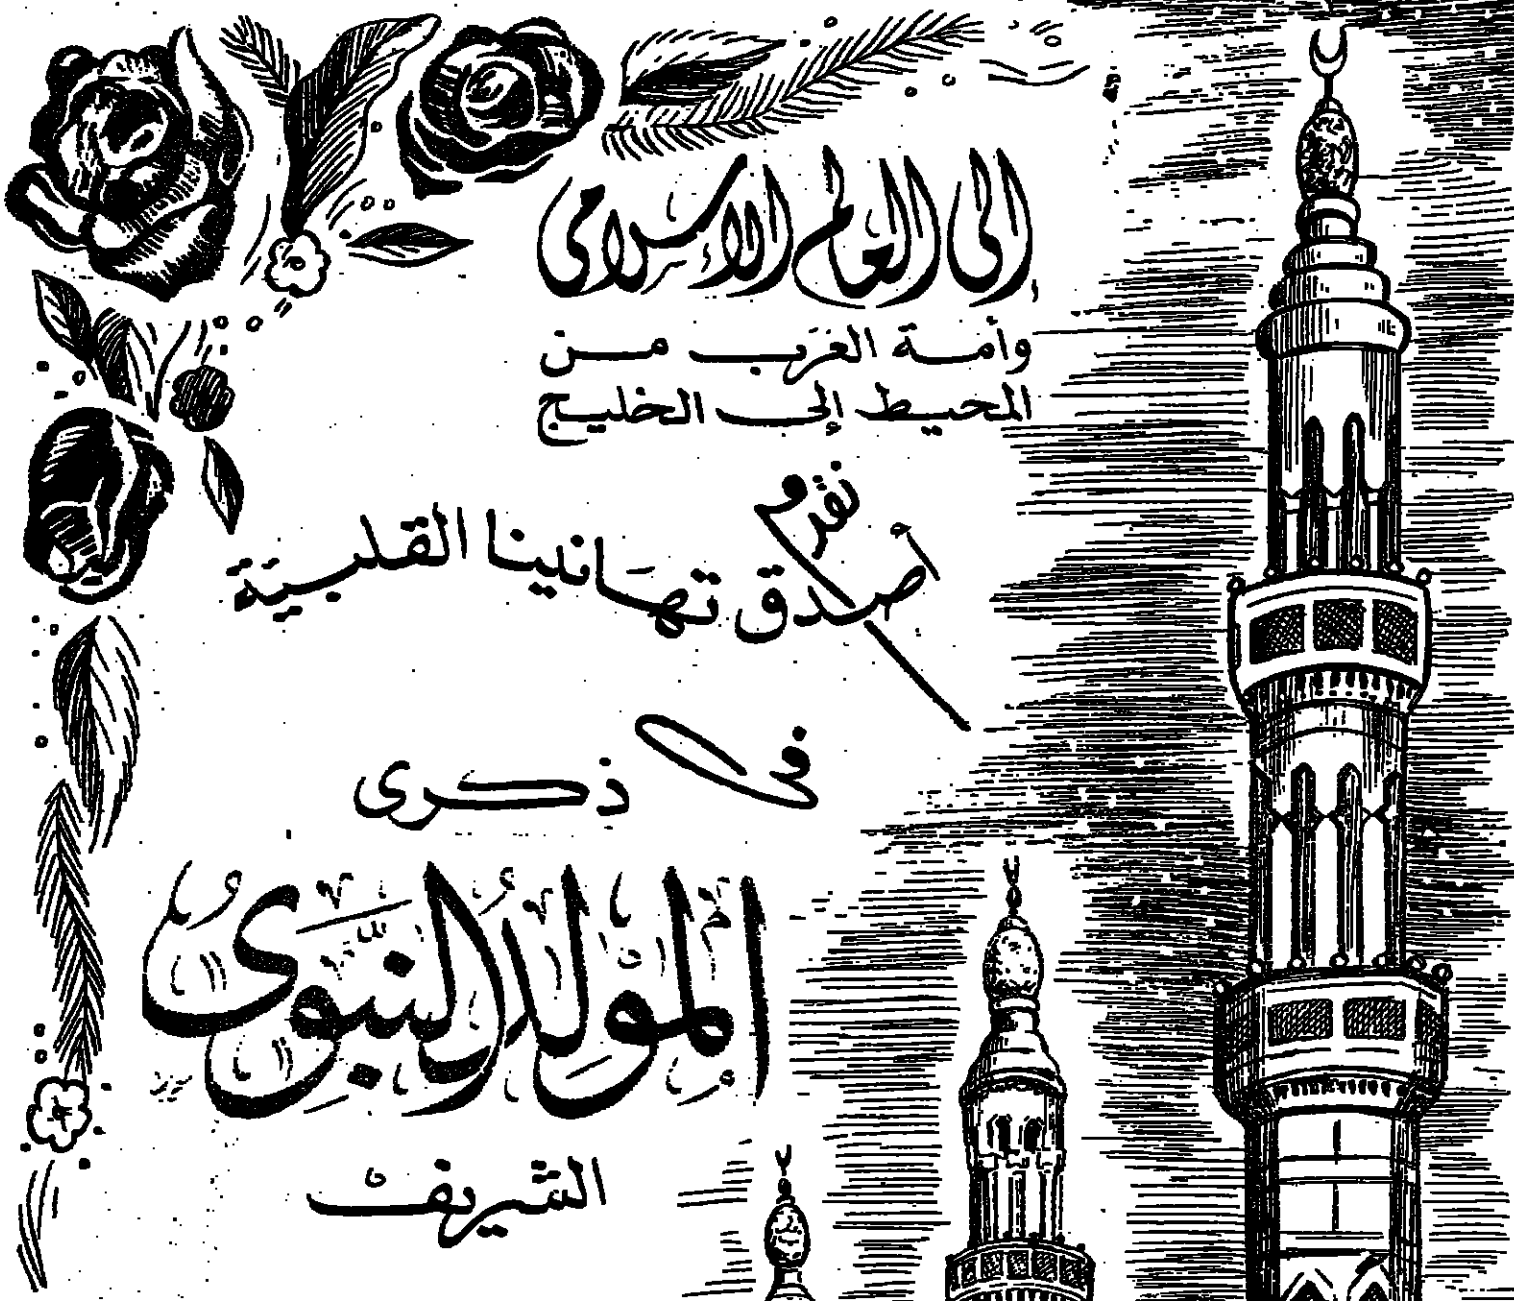 إلى العالم الإسلامي
وأمة العرب من
المحيط إلى الخليج
نقدم
أصدق تهانينا القلبية
في ذكرى
المولد النبوي
الشريف